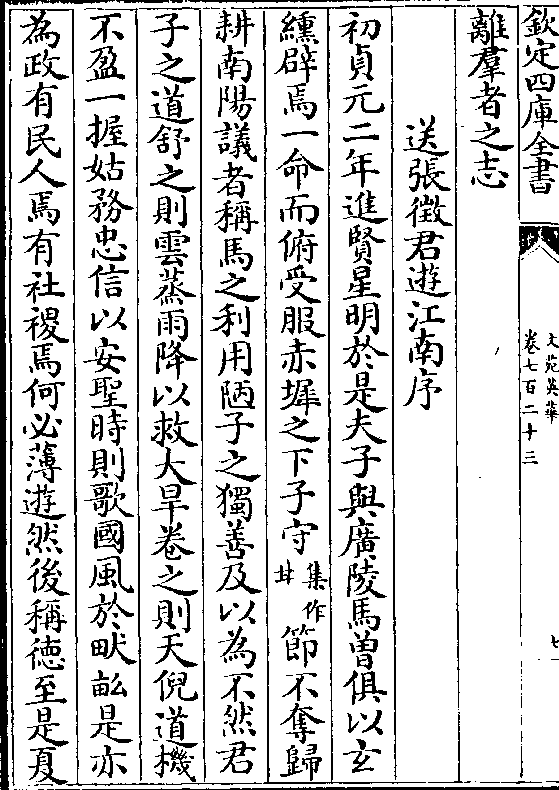 欽定四庫全書
文苑英華
卷七百二十三
七
離羣者之志
送張徵君遊江南序
初貞元二年進賢星明於是夫子與廣陵馬曾俱以玄
纁辟焉一命而俯受服赤墀之下子守集作甘節不奪歸
耕南陽議者稱馬之利用陋子之獨善及以為不然君
子之道舒之則雲蒸雨降以救大旱卷之則天倪道機
不盈一握姑務忠信以安聖時則歌國風於畎畝是亦
為政有民人焉有社稷焉何必薄遊然後稱徳至是夏